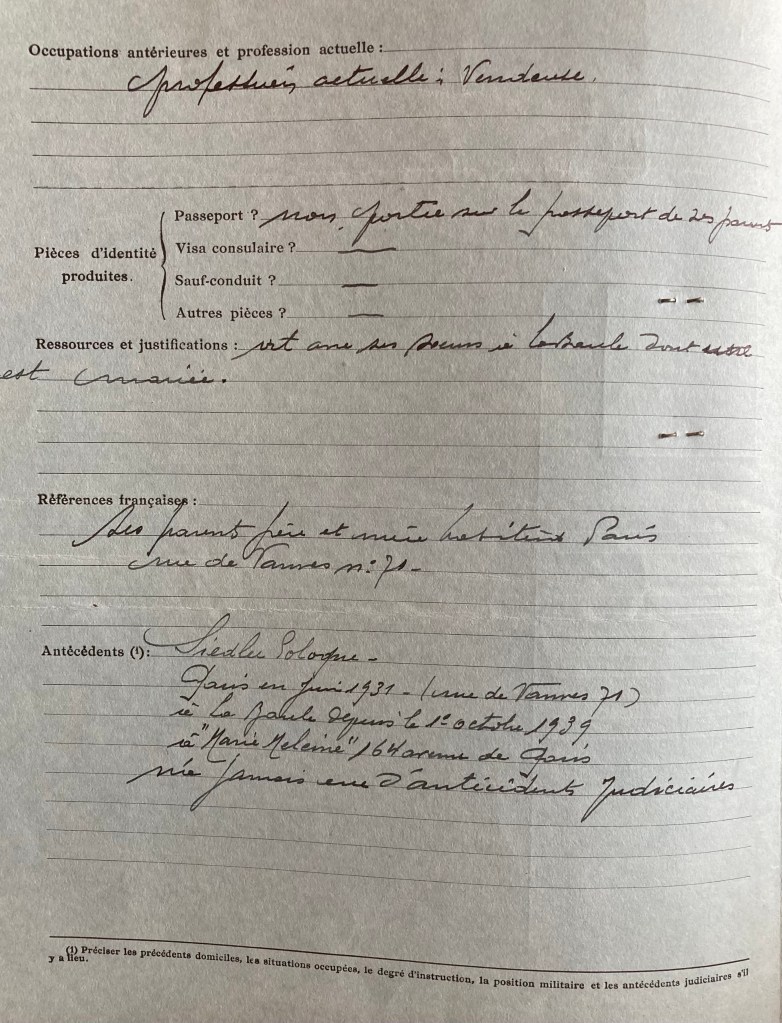 Occupations antérieures et profession actuelle :
profession actuelle : Vendeuse.
Pièces d'identité produites.
Passeport ? non, portée sur le passeport de ses parents
Visa consulaire ? —
Sauf-conduit ? —
Autres pièces ? —
Ressources et justifications : vit avec ses sœurs à La Baule dont une
est mariée.
Références françaises :
Ses parent père et mère habitent Paris
rue de Vanves n° 71 -
Antécédents (¹) : Siedlce Pologne -
Paris en juin 1931 - (rue de Vanves 71)
à La Baule depuis le 1° octobre 1939
à "Marie" 164 avenue de Paris
jamais eue d'antécédents Judiciaires
(1) Préciser les précédents domiciles, les situations occupées, le degré d'instruction, la position militaire et les antécédents judiciaires s'il
y a lieu.